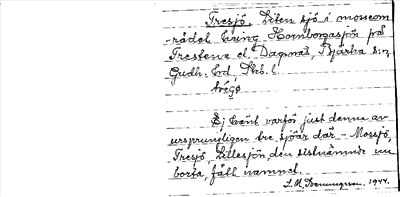 Tresjö. Liten sjö i mosseom
rådet kring Hornborgasjön på
Trestena el. Dagsnäs, Bjärka s:n
Gudh. hd. Skb. l.
Ej känt varför just denna av
ursprungligen tre sjöar där - Mossjö,
Tresjö, Lillesjön, den sistnämnde nu
borta, fått namnet.
1944.